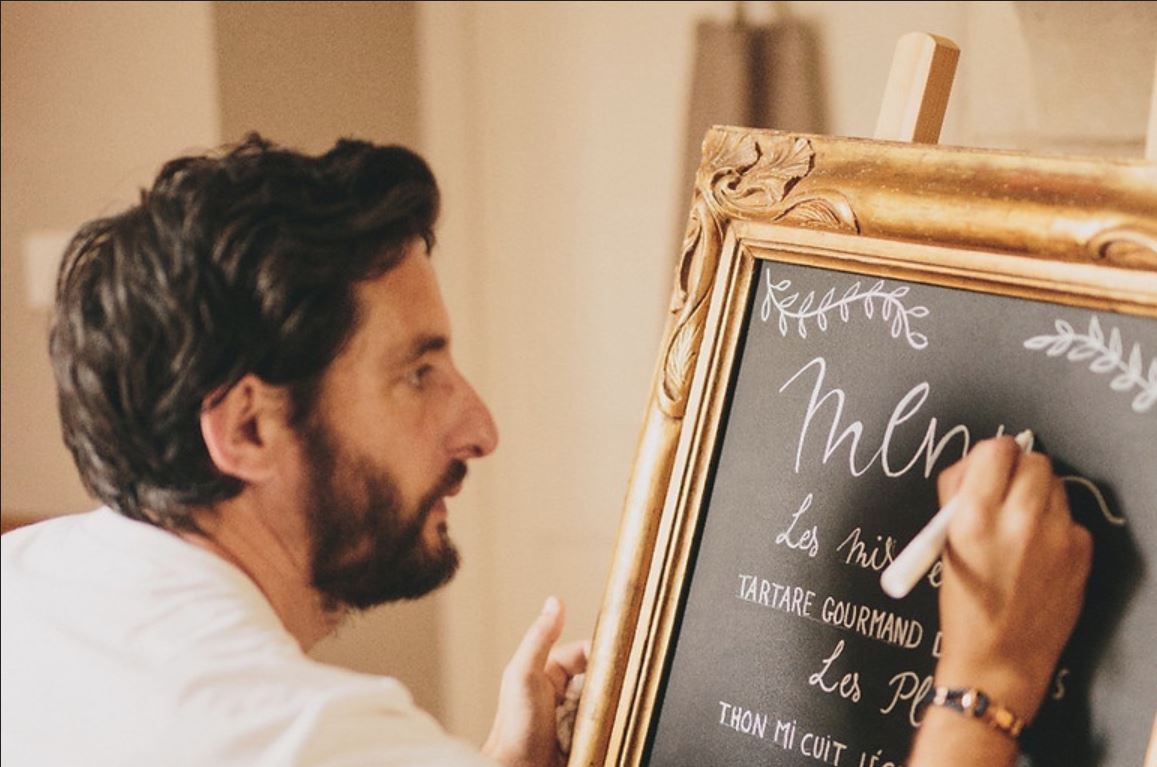 Menu
Les mis
TARTARE GOURMAND D
Les Pl
THON Mi CUIT LÉG